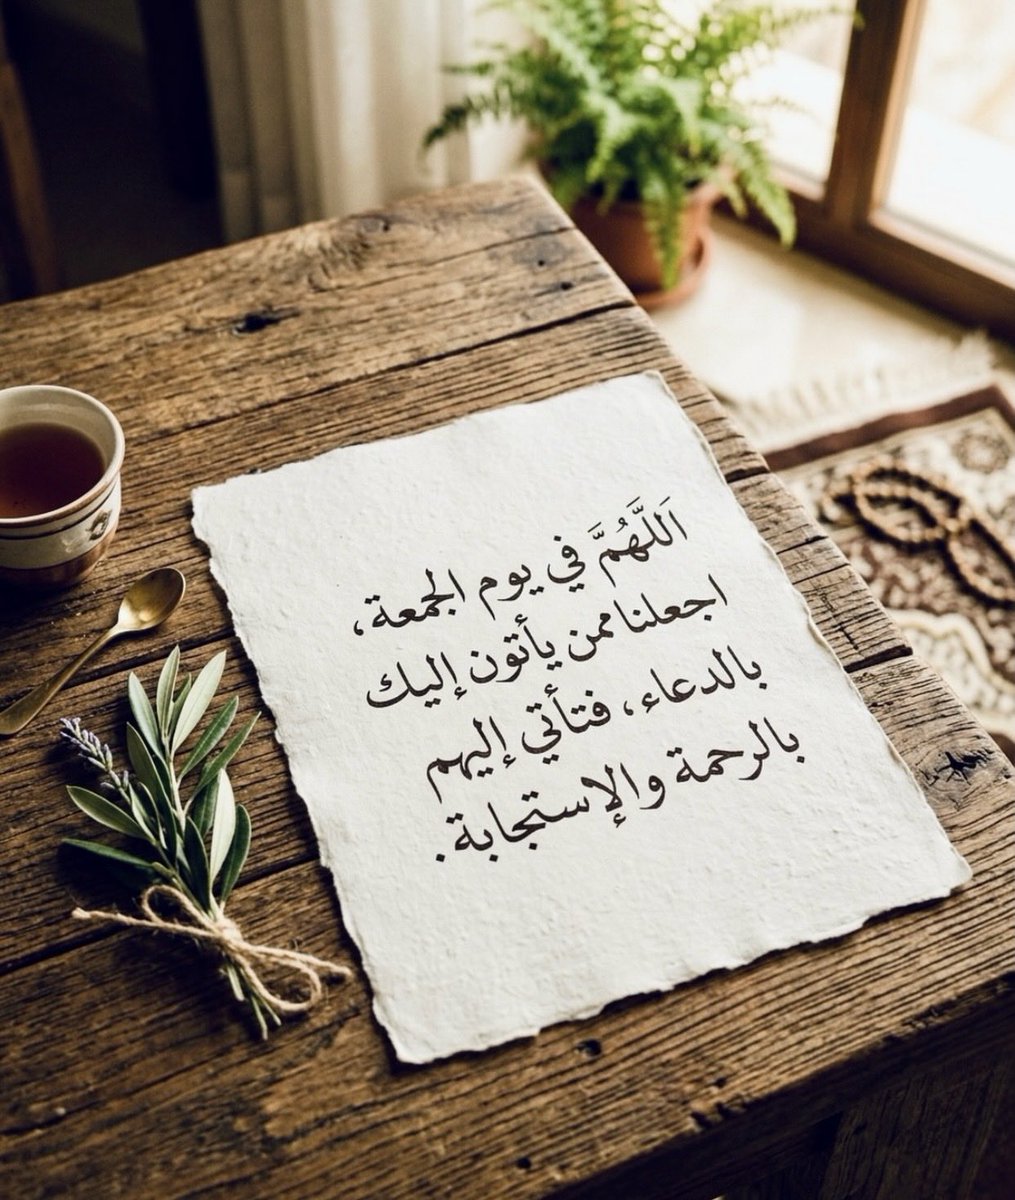 اَللَّهُمَّ في يوم الجمعة،
اجعلنا ممن يأتون إليك
بالدعاء، فتأتي إليهم
بالرحمة والإستجابة.